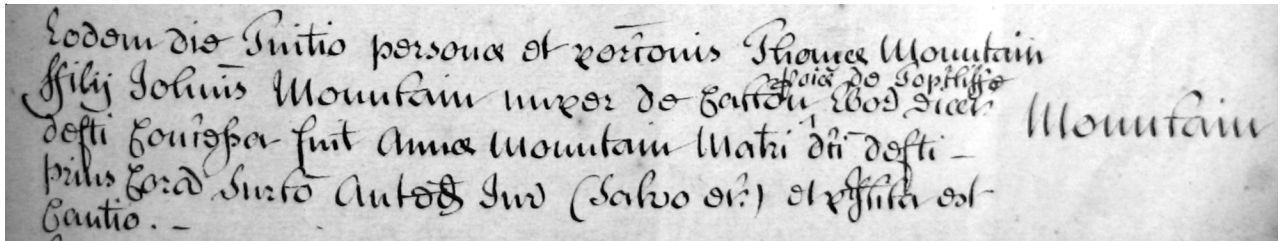 Eodem die Tuitio personæ et porc̃onis Thomæ Mountain
ffilij Joh̃nis Mountain nuper de Catton poiæ de Topcliffe Ebor̃ dioces̃
defti Com̃issa fuit Annæ Mountain Matri dc̃i defti
prius Corã Jurto Jurõ (Salvo etc̃) et est
Cautio. -
Mountain